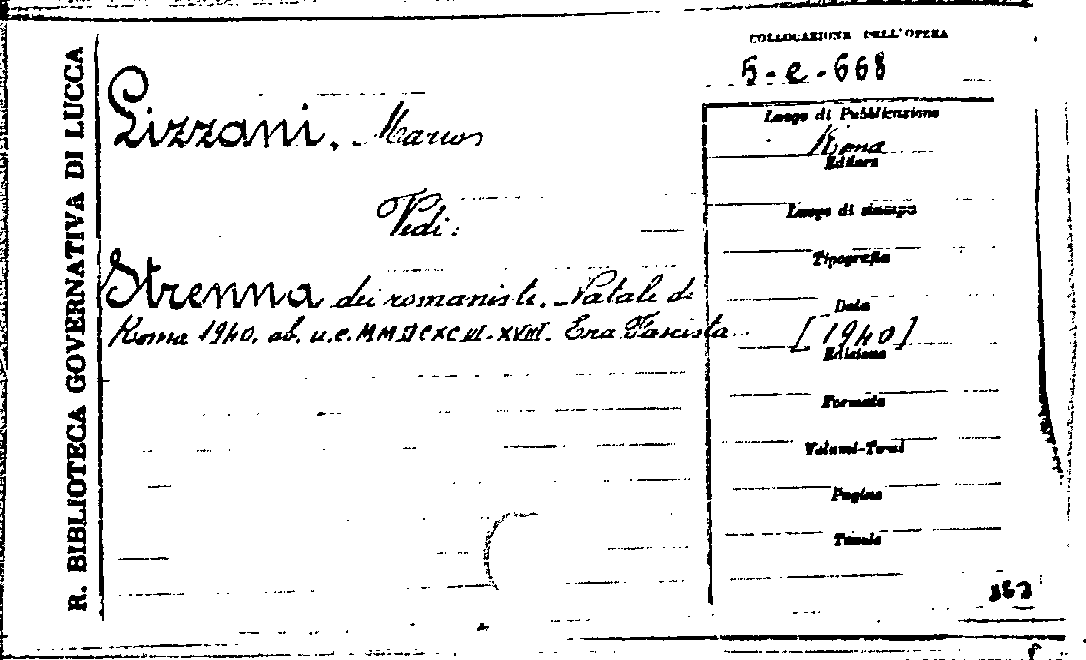 R. BIBLIOTECA GOVERNATIVA DI LUCCA
COLLOCAZIONE DELL'OPERA
5-e-668
Lizzani, Mario
Vedi:
Strenna dei romanisti. Natale di
Roma 1940. ab. u.c. MMDCXCIII-XVIII. Era Fascista
Luogo di Pubblicazione
Roma
Editore
Luogo di stampa
Tipografia
Data
[1940]
Edizione
Formato
Volumi-Tomi
Pagine
Tavole